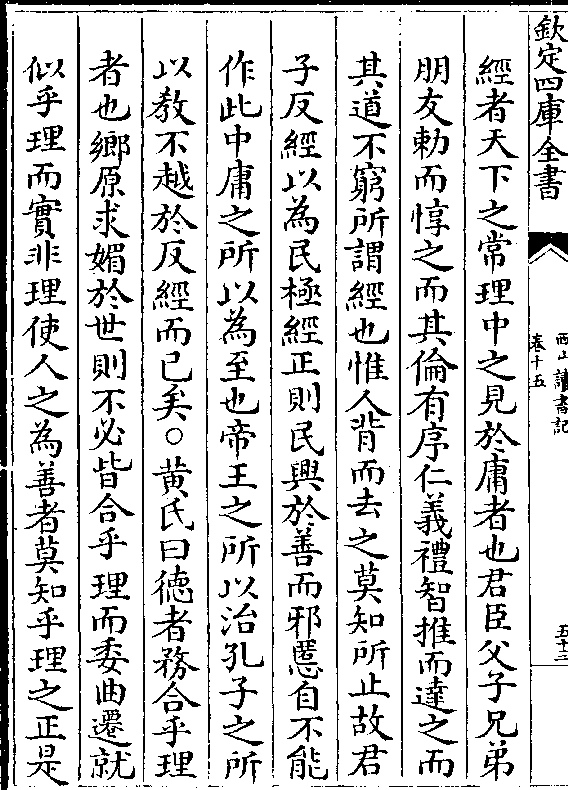 欽定四庫全書
西山讀書記
卷十五
五十三
經者天下之常理中之見於庸者也君臣父子兄弟
朋友勅而惇之而其倫有序仁義禮智推而達之而
其道不窮所謂經也惟人背而去之莫知所止故君
子反經以為民極經正則民興於善而邪慝自不能
作此中庸之所以為至也帝王之所以治孔子之所
以教不越於反經而已矣○黄氏曰徳者務合乎理
者也鄉原求媚於世則不必皆合乎理而委曲遷就
似乎理而實非理使人之為善者莫知乎理之正是